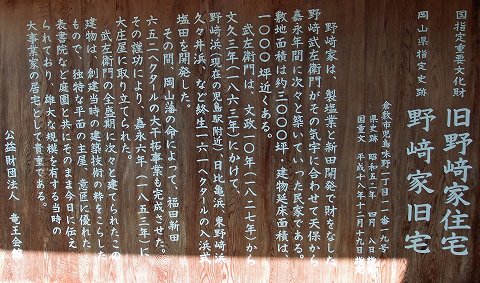 国指定重要文化財
旧野﨑家住宅
岡山県指定史跡
野﨑家旧宅
倉敷市児島味野一丁目一一番一九号
県史跡 昭和五二年 四月 八日
国重文 平成十八年十二月十九日
野﨑家は、製塩業と新田開発で財をなした
野﨑武左衛門がその気字に合わせて天保から
嘉永年間に次々と築いていった民家である。
敷地面積は約三〇〇〇坪・建物延床面積は、
一〇〇〇坪近くある。
武左衛門は、文政一〇年(一八二七年)から
文久三年(一八六三年)にかけて、
野﨑浜(現在の児島駅附近)、日比亀浜、東野﨑浜、
久々井浜、など終生一六一ヘクタールの入浜式
塩田を開発した。
その間、岡山藩の命によって、福田新田
六五二ヘクタールの大干拓事業も完成させた。
その謹功により、嘉永六年(一八五三年)に
大庄屋に取り立てられた。
武左衛門の全盛期に次々と建てられたこの
建物は、創建当時の建築技術の粋をこらした
もので、独特な平面の主屋、意匠に優れた
表書院など庭園と共にそのまま今日に伝え
られており、雄大な規模を有する当時の
大事業家の居宅として貴重である。
公益財団法人 竜王会館